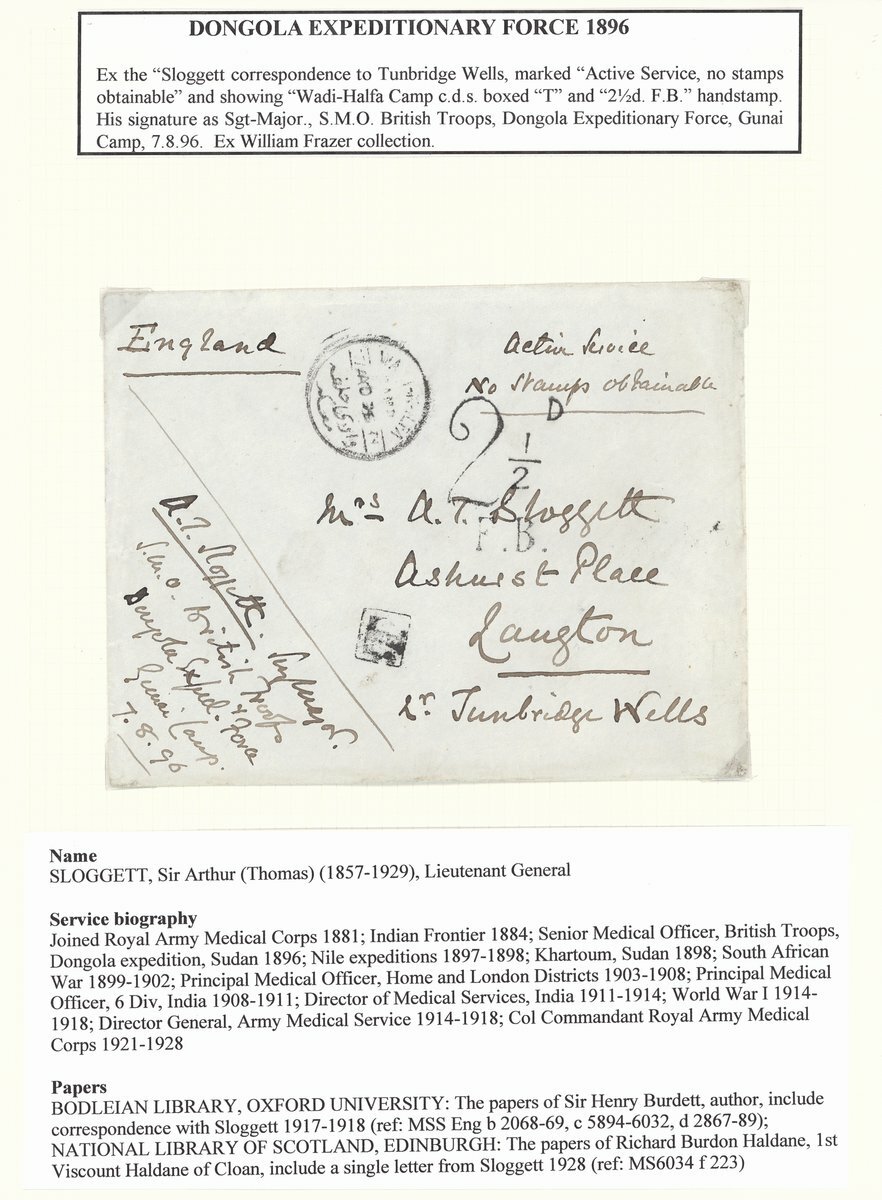 DONGOLA EXPEDITIONARY FORCE 1896
Ex the “Sloggett correspondence to Tunbridge Wells, marked “Active Service, no stamps
obtainable” and showing “Wadi-Halfa Camp c.d.s. boxed “T” and “2½d. F.B.” handstamp.
His signature as Sgt-Major., S.M.O. British Troops, Dongola Expeditionary Force, Gunai
Camp, 7.8.96.  Ex William Frazer collection.
England
Active Service
No Stamps obtainable
2½ D
F.B.
Mrs A.T. Sloggett
Ashurst Place
Langton
Nr Tunbridge Wells
T
A.T. Sloggett. Surg Major.
S.M.O. British Troops
Dongola Exped. Force
Gunai Camp.
7.8.96
Name
SLOGGETT, Sir Arthur (Thomas) (1857-1929), Lieutenant General
Service biography
Joined Royal Army Medical Corps 1881; Indian Frontier 1884; Senior Medical Officer, British Troops,
Dongola expedition, Sudan 1896; Nile expeditions 1897-1898; Khartoum, Sudan 1898; South African
War 1899-1902; Principal Medical Officer, Home and London Districts 1903-1908; Principal Medical
Officer, 6 Div, India 1908-1911; Director of Medical Services, India 1911-1914; World War I 1914-
1918; Director General, Army Medical Service 1914-1918; Col Commandant Royal Army Medical
Corps 1921-1928
Papers
BODLEIAN LIBRARY, OXFORD UNIVERSITY: The papers of Sir Henry Burdett, author, include
correspondence with Sloggett 1917-1918 (ref: MSS Eng b 2068-69, c 5894-6032, d 2867-89);
NATIONAL LIBRARY OF SCOTLAND, EDINBURGH: The papers of Richard Burdon Haldane, 1st
Viscount Haldane of Cloan, include a single letter from Sloggett 1928 (ref: MS6034 f 223)